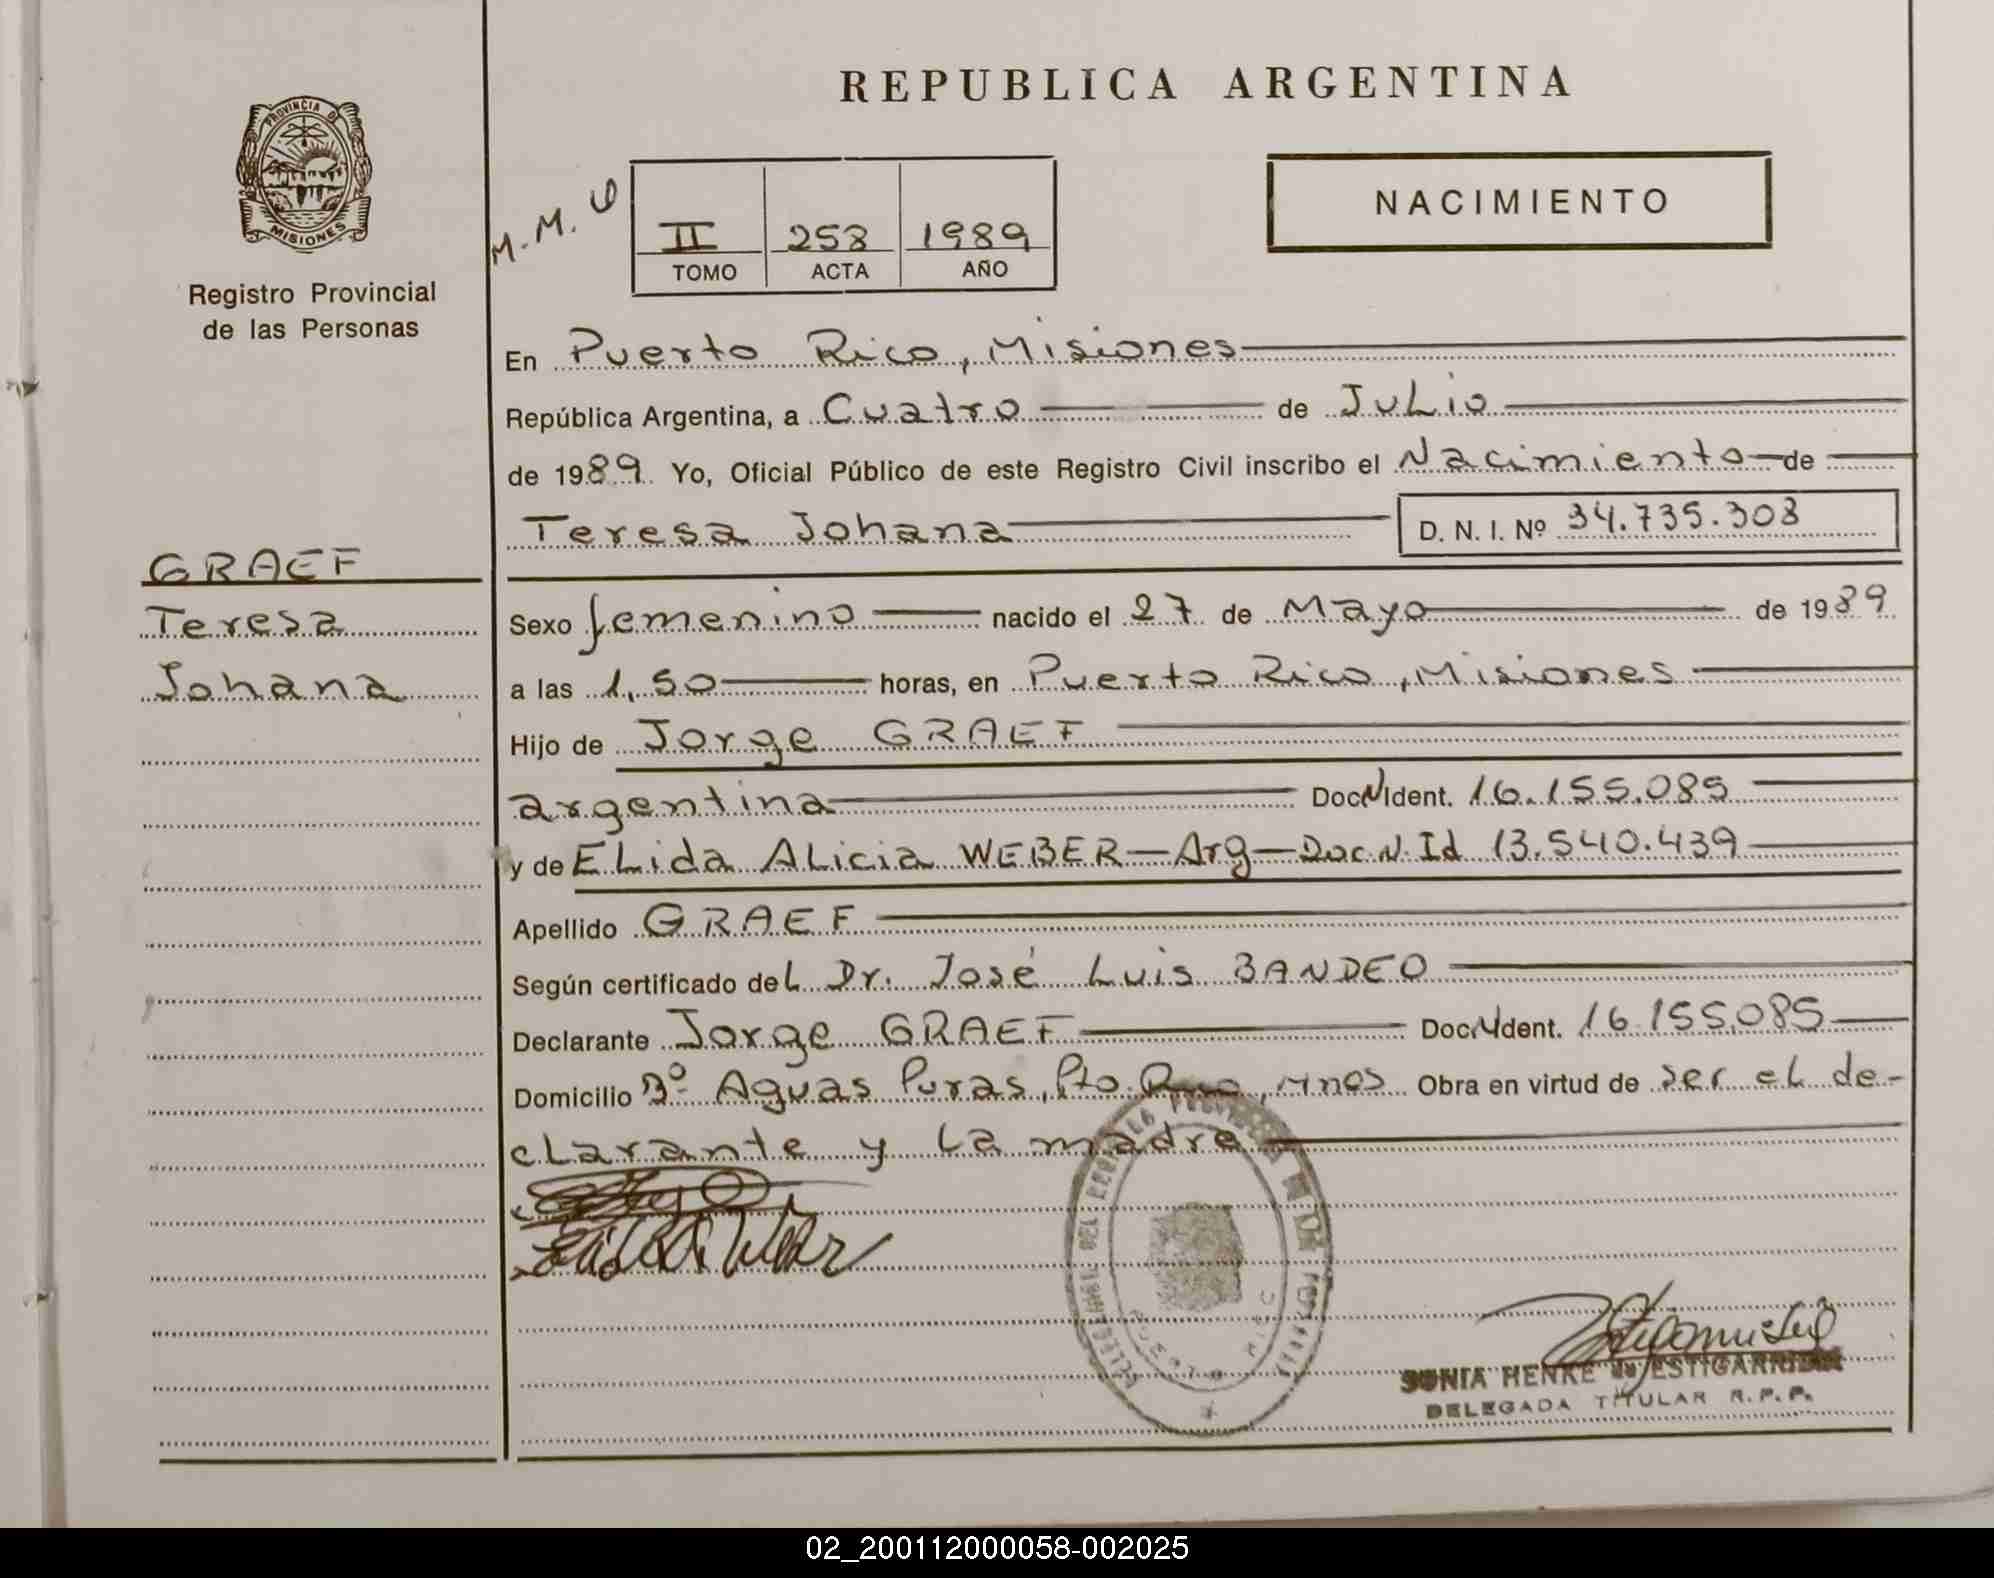 REPUBLICA ARGENTINA
PROVINCIA DE
MISIONES
Registro Provincial
de las Personas
M.M.
II 258 1989
TOMO ACTA AÑO
NACIMIENTO
En Puerto Rico, Misiones
República Argentina, a Cuatro de Julio
de 1989. Yo, Oficial Público de este Registro Civil inscribo el Nacimiento de
Teresa Johana D. N. I. Nº 34.735.308
GRAEF
Teresa
Johana
Sexo femenino nacido el 27 de Mayo de 1989
a las 1,50 horas, en Puerto Rico, Misiones
Hijo de Jorge GRAEF
argentina Doc. N Ident. 16.155.085
y de ELida ALicia WEBER-Arg-Doc.N.Id 13.540.439
Apellido GRAEF
Según certificado del Dr. José Luis BANDEO
Declarante Jorge GRAEF Doc. N Ident. 16.155.085
Domicilio Bº Aguas Puras, Pto. Rico, Mnes Obra en virtud de ser el de-
clarante y la madre
SONIA HENKE de ESTIGARRIBIA
DELEGADA TITULAR R.P.P.
02_200112000058-002025